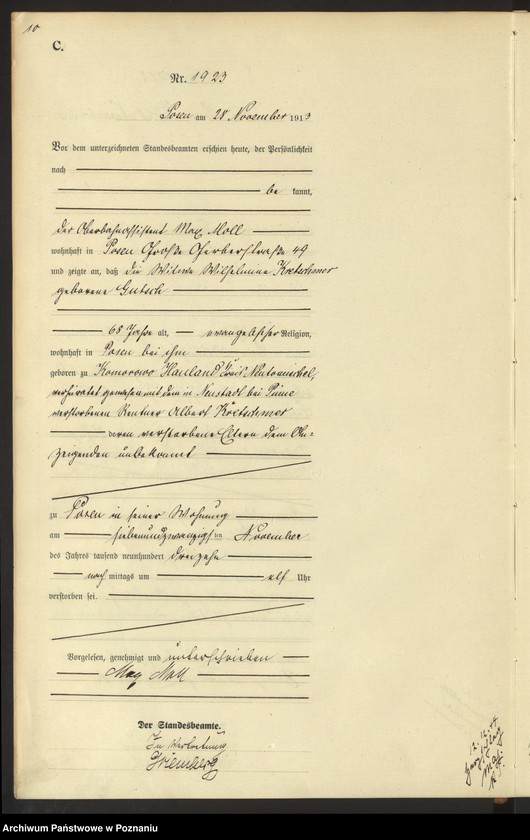 10
C.
Nr. 1923
Posen am 28 November 1913
Vor dem unterzeichneten Standesbeamten erschien heute, der Persönlichkeit
nach
be kannt,
der Oberbahnassistent Max Moll
wohnhaft in Posen Große Gerberstraße 49
und zeigte an, daß die Witwe Wilhelmine Kretschmer
geborene Gutsch
68 Jahre alt, evangelischer Religion,
wohnhaft in Posen bei ihm
geboren zu Komorowo Hauland Kreis Neutomischel,
verheiratet gewesen mit dem in Neustadt bei Pinne
verstorbenen Rentner Albert Kretschmer
deren verstorbene Eltern dem An-
zeigenden unbekannt
zu Posen in seiner Wohnung
am siebenundzwanzigsten November
des Jahres tausend neunhundert dreizehn
nach mittags um elf Uhr
verstorben sei.
Vorgelesen, genehmigt und unterschrieben
Max Moll
Der Standesbeamte.
In Vertretung
Archiwum Państwowe w Poznaniu